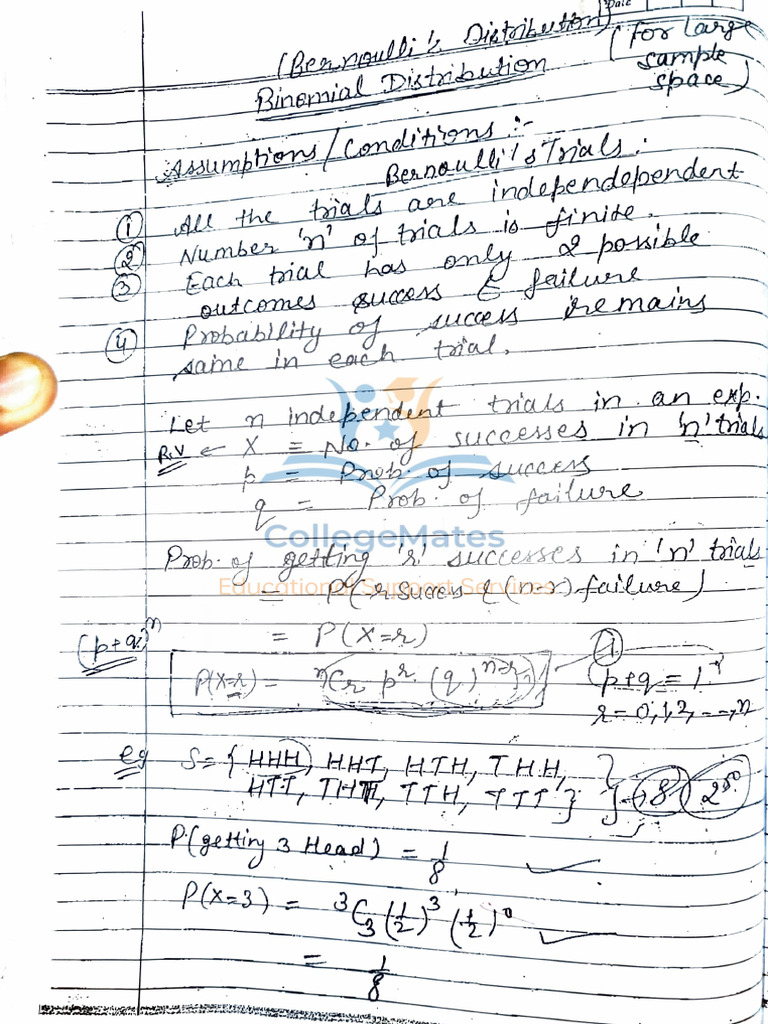 Date
(Bernoulli's Distribution)
Binomial Distribution
(for large
sample
space)
Assumptions/Conditions :-
Bernoulli's Trials.
① All the trials are independependent
② Number 'n' of trials is finite.
③ Each trial has only 2 possible
outcomes success & failure
④ Probability of success remains
same in each trial.
Let n independent trials in an exp.
R.V ← X = No. of successes in 'n' trials
p = Prob. of success
q = Prob. of failure
CollegeMates
Prob. of getting 'r' successes in 'n' trials
Educational Support Services
= P(r success & (n-r) failure)
(p+q)ⁿ
= P(X=r)
P(X=r) = ⁿCr pʳ (q)ⁿ⁻ʳ
①
p+q=1
r=0,1,2,--,n
eg S={ HHH, HHT, HTH, THH,
HTT, THT, TTH, TTT } 8 2⁵⁰
P(getting 3 Head) = 1/8
P(X=3) = ³C₃ (1/2)³ (1/2)⁰
= 1/8